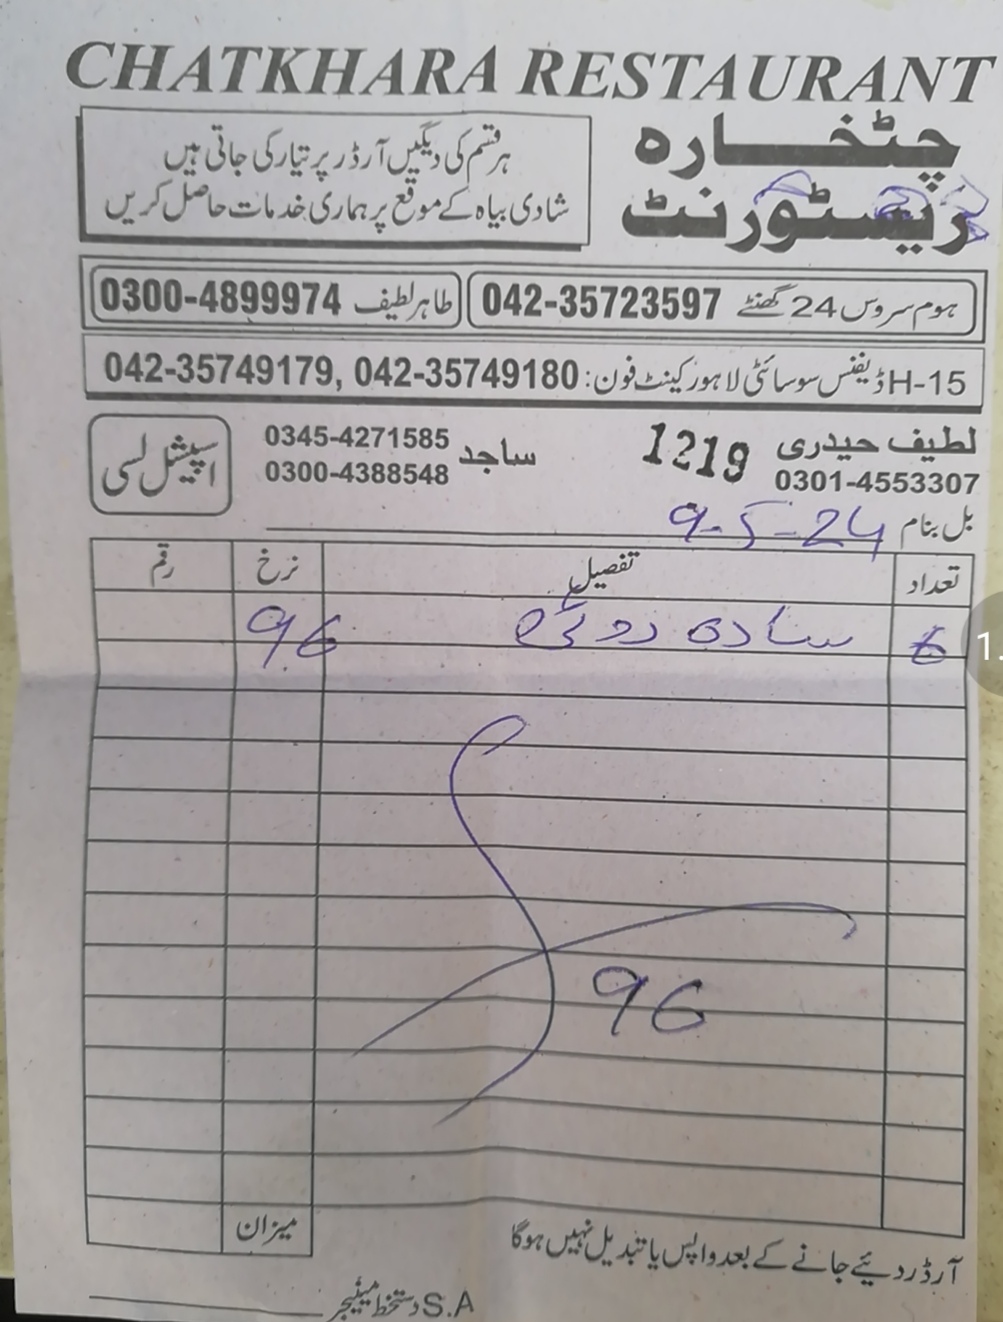 CHATKHARA RESTAURANT
چٹخارہ
ریسٹورنٹ
ہر قسم کی دیگیں آرڈر پر تیار کی جاتی ہیں
شادی بیاہ کے موقع پر ہماری خدمات حاصل کریں
ہوم سروس 24 گھنٹے 042-35723597
طاہر لطیف 0300-4899974
H-15 ڈیفنس سوسائٹی لاہور کینٹ فون: 042-35749179, 042-35749180
لطیف حیدری
0301-4553307
1219
ساجد
0345-4271585
0300-4388548
اسپیشل لسی
بل بنام 9-5-24
تعداد تفصیل نرخ رقم
6 سادہ روٹی 96
96
میزان
آرڈر دئیے جانے کے بعد واپس یا تبدیل نہیں ہوگا
S.A دستخط مینیجر
1.